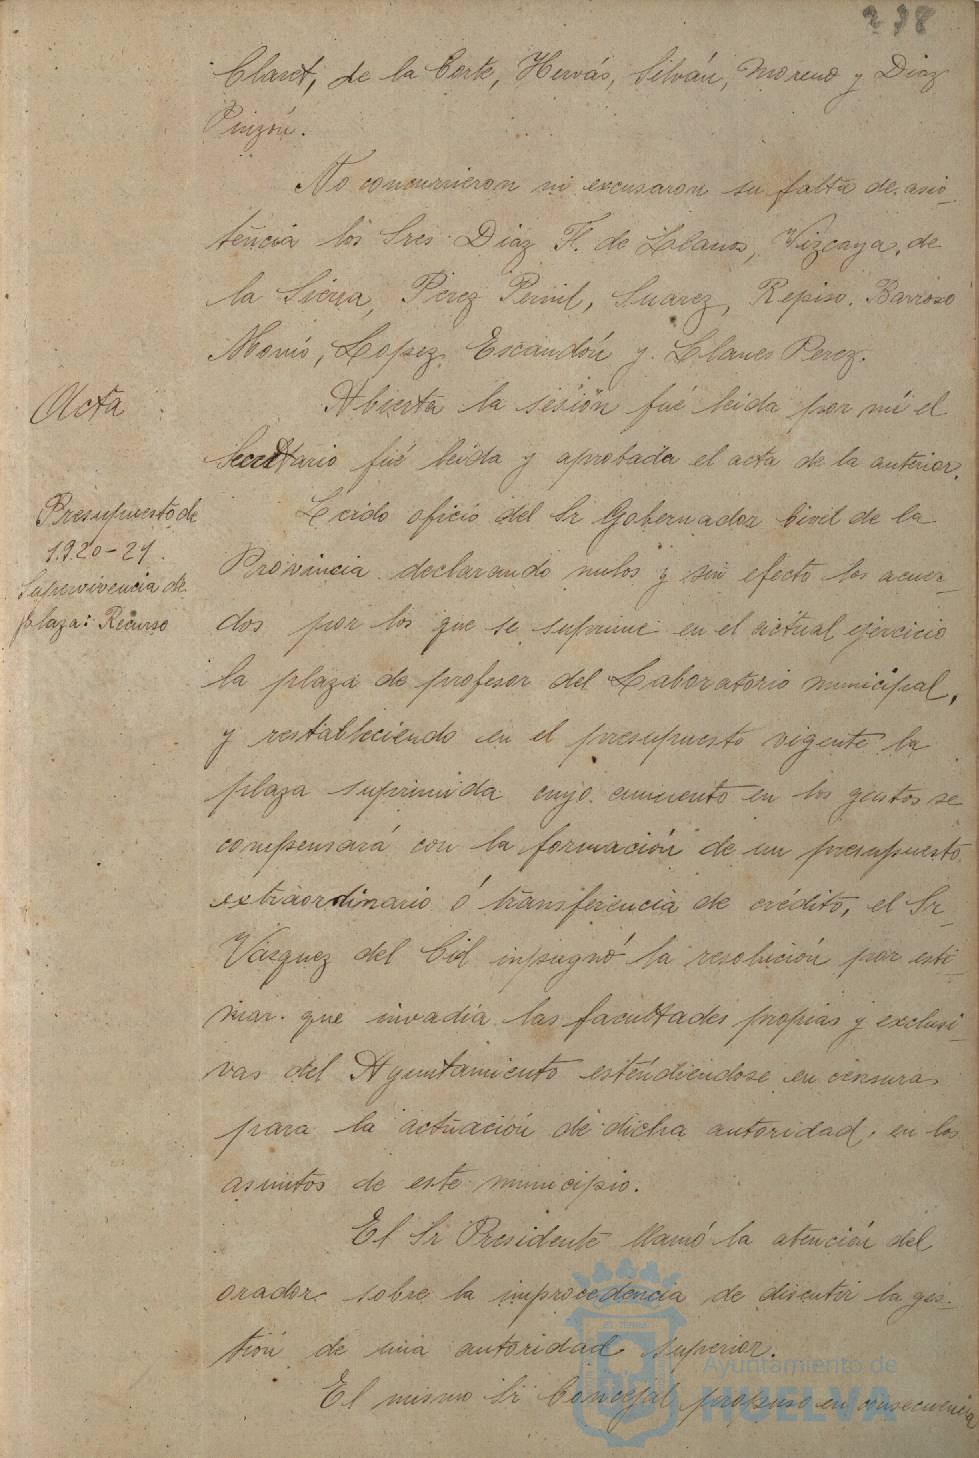 238
Claret, de la Corte, Hervás, Silván, Moreno y Diaz
Pinzón.
No concurrieron ni excusaron su falta de asis-
tencia los Sres. Diaz F. de Llanos, Vizcaya, de
la Sierra, Pérez Pernil, Suarez, Repiso, Barroso
Monís, Lopez, Escandón y Llanes Perez.
Acta
Abierta la sesión fué leida por mí el
Secretario fué leida y aprobada el acta de la anterior.
Presupuesto de
1920-21.
Supervivencia de
plaza: Recurso
Leido oficio del Sr Gobernador Civil de la
Provincia declarando nulos y sin efecto los acuer-
dos por los que se suprime en el actual ejercicio
la plaza de profesor del Laboratorio municipal,
y restableciendo en el presupuesto vigente la
plaza suprimida cuyo aumento en los gastos se
compensará con la formación de un presupuesto
extraordinario ó transferencia de crédito, el Sr
Vázquez del Cid inpugnó la resolución por esti-
mar que invadía las facultades propias y exclusi-
vas del Ayuntamiento esténdiendose en censuras
para la actuación de dicha autoridad, en los
asuntos de este municipio.
El Sr Presidente llamó la atención del
orador sobre la improcedencia de discutir la ges-
tión de una autoridad superior.
El mismo Sr Concejal propuso en consecuencia
Ayuntamiento de
HUELVA